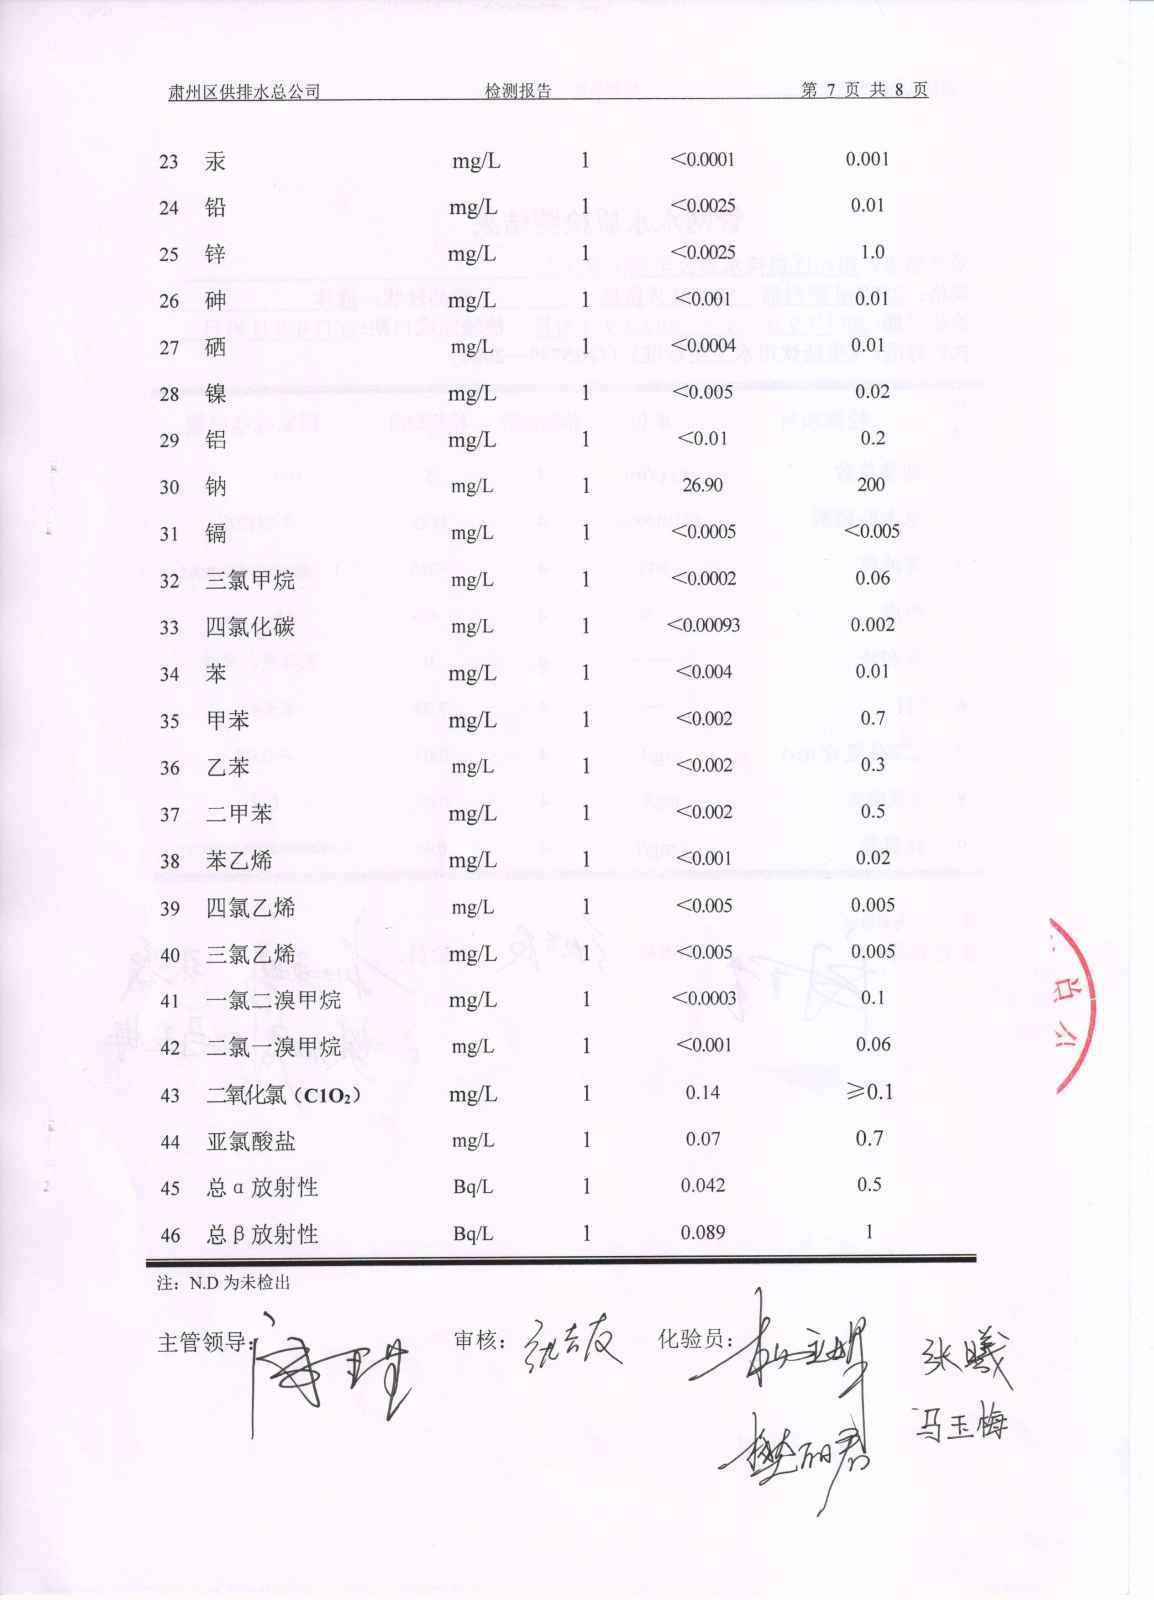 肃州区供排水总公司 检测报告 第 7 页 共 8 页
23 汞 mg/L 1 <0.0001 0.001
24 铅 mg/L 1 <0.0025 0.01
25 锌 mg/L 1 <0.0025 1.0
26 砷 mg/L 1 <0.001 0.01
27 硒 mg/L 1 <0.0004 0.01
28 镍 mg/L 1 <0.005 0.02
29 铝 mg/L 1 <0.01 0.2
30 钠 mg/L 1 26.90 200
31 镉 mg/L 1 <0.0005 <0.005
32 三氯甲烷 mg/L 1 <0.0002 0.06
33 四氯化碳 mg/L 1 <0.00093 0.002
34 苯 mg/L 1 <0.004 0.01
35 甲苯 mg/L 1 <0.002 0.7
36 乙苯 mg/L 1 <0.002 0.3
37 二甲苯 mg/L 1 <0.002 0.5
38 苯乙烯 mg/L 1 <0.001 0.02
39 四氯乙烯 mg/L 1 <0.005 0.005
40 三氯乙烯 mg/L 1 <0.005 0.005
41 一氯二溴甲烷 mg/L 1 <0.0003 0.1
42 二氯一溴甲烷 mg/L 1 <0.001 0.06
43 二氧化氯（C1O₂） mg/L 1 0.14 ≥0.1
44 亚氯酸盐 mg/L 1 0.07 0.7
45 总α放射性 Bq/L 1 0.042 0.5
46 总β放射性 Bq/L 1 0.089 1
注：N.D 为未检出
主管领导： 审核： 化验员： 张曦
樊丽君 马玉梅
总公